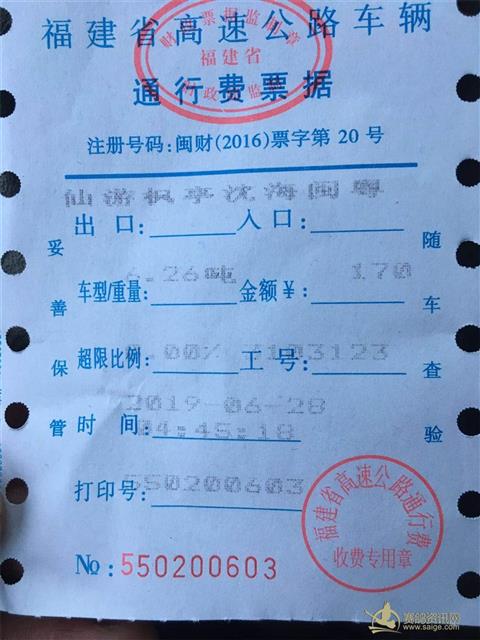 福建省高速公路车辆
通行费票据
财政票据监制章
福建省
注册号码:闽财(2016)票字第 20 号
仙游枫亭沈海闽粤
出口: 入口:
6.26吨 170
车型/重量: 金额￥:
0.00% 3103123
超限比例: 工号:
2019-06-28
时间: 04:45:18
打印号: 550200603
№: 550200603
妥善保管
随车查验
福建省高速公路通行费
收费专用章
赛鸽资讯网
www.saige.com